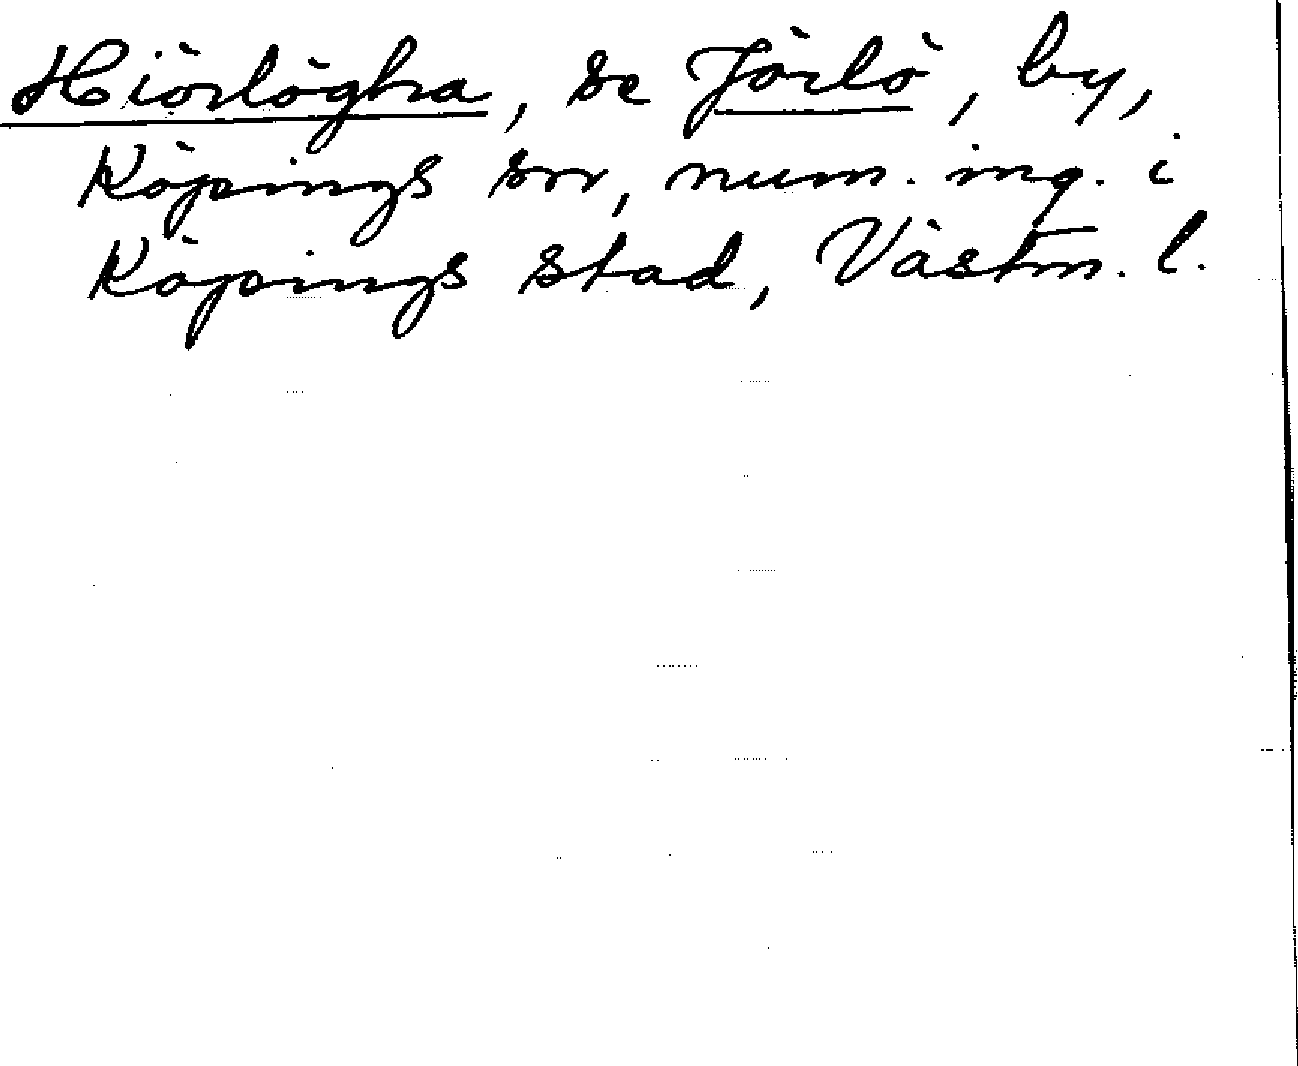 Hiörlögha, se Jörlö, by,
Köpings sn, num. ing. i
Köpings stad, Västm. l.